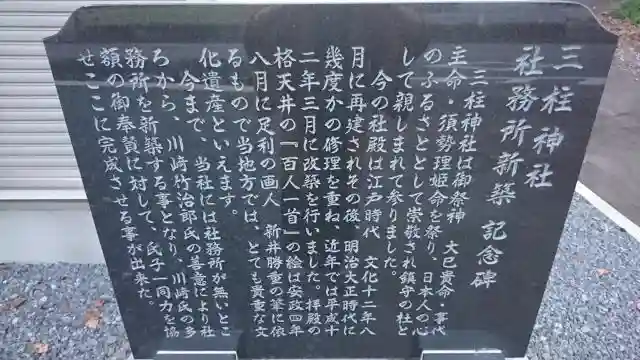 三柱神社
社務所新築 記念碑
三柱神社は御祭神 大己貴命・事代
主命・須勢理姫命を祭り、日本人の心
のふるさととして崇敬され鎮守の杜と
して親しまれて参りました。
今の社殿は江戸時代 文化十二年八
月に再建されその後、明治大正時代に
幾度かの修理を重ね、近年では平成十
二年三月に改築を行いました。拝殿の
格天井の「百人一首」の絵は安政四年
八月に足利の画人 新井勝重の筆に依
るもので当地方では、とても貴重な文
化遺産といえます。
今まで、当社には社務所が無いとこ
ろから、川﨑竹治郎氏の善意により社
務所を新築する事となり、川﨑氏の多
額の御奉賛に対して、氏子一同力を協
せここに完成させる事が出来た。